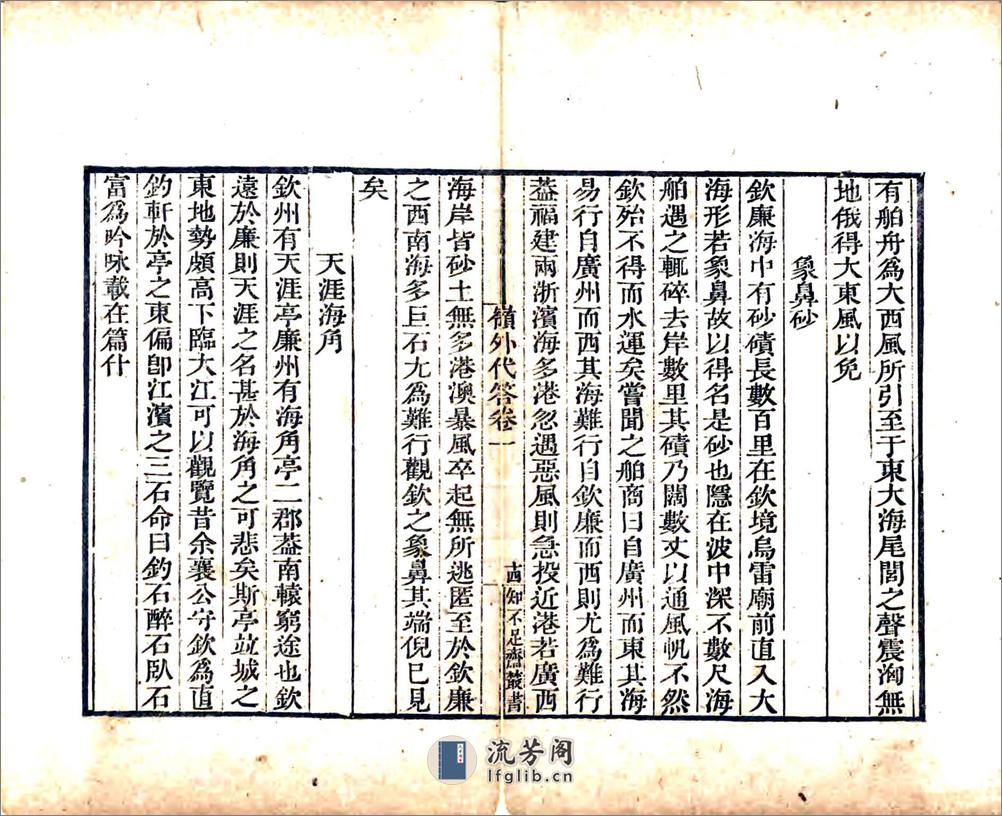 有舶舟爲大西風所引至于東大海尾閭之聲震洶無
地俄得大東風以免
象鼻砂
欽廉海中有砂磧長數百里在欽境烏雷廟前直入大
海形若象鼻故以得名是砂也隱在波中深不數尺海
舶遇之輒碎去岸數里其磧乃闊數丈以通風帆不然
欽殆不得而水運矣嘗聞之舶商曰自廣州而東其海
易行自廣州而西其海難行自欽廉而西則尤爲難行
葢福建兩浙濱海多港忽遇惡風則急投近港若廣西
嶺外代答卷一
十四
知不足齋叢書
海岸皆砂土無多港澳暴風卒起無所逃匿至於欽廉
之西南海多巨石尤爲難行觀欽之象鼻其端倪已見
矣
天涯海角
欽州有天涯亭廉州有海角亭二郡葢南轅窮途也欽
遠於廉則天涯之名甚於海角之可悲矣斯亭竝城之
東地勢頗高下臨大江可以觀覽昔余襄公守欽爲直
釣軒於亭之東偏卽江濱之三石命曰釣石醉石臥石
富爲吟咏載在篇什
流芳阁
lfglib.cn